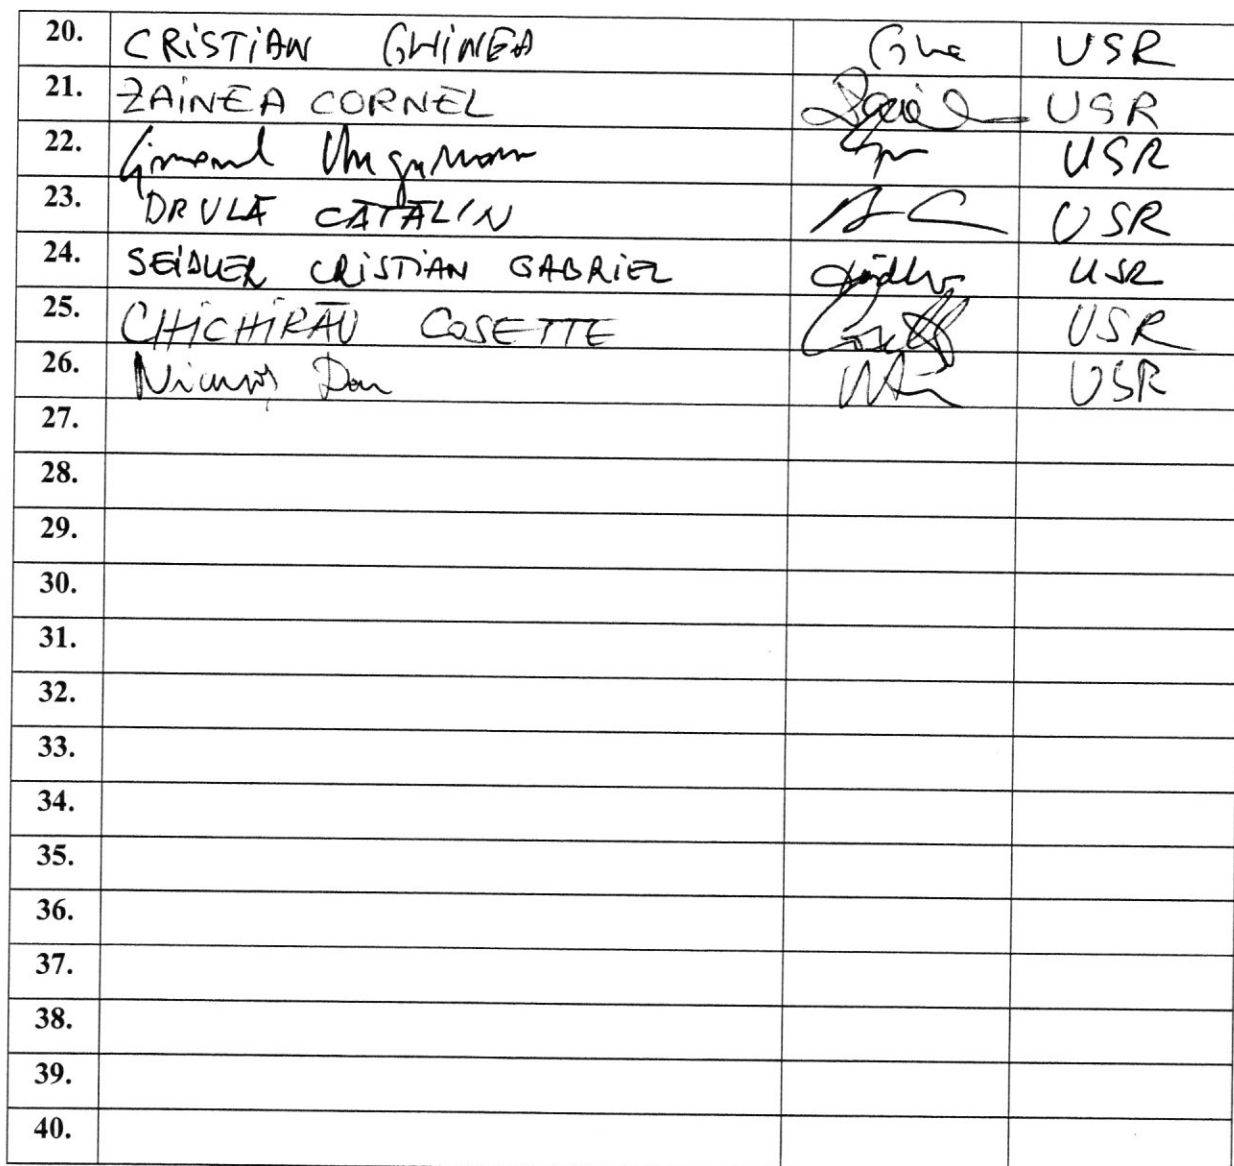 20. CRISTIAN GHINEA USR
21. ZAINEA CORNEL USR
22. USR
23. DRULĂ CĂTĂLIN USR
24. SEIDLER CRISTIAN GABRIEL USR
25. CHICHIRĂU COSETTE USR
26. Nicușor Dan USR
27.
28.
29.
30.
31.
32.
33.
34.
35.
36.
37.
38.
39.
40.